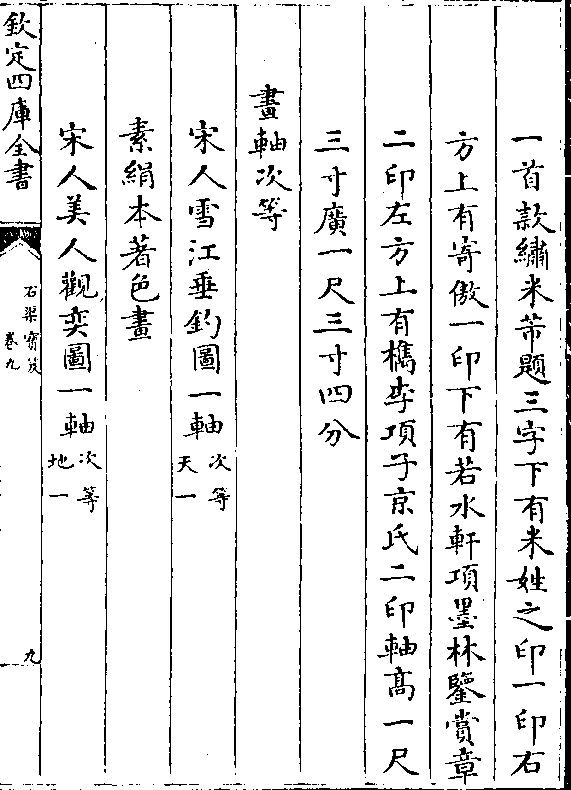 一首款繡米芾題三字下有米姓之印一印右
方上有寄傲一印下有若水軒項墨林鑒賞章
二印左方上有檇李項子京氏二印軸高一尺
三寸廣一尺三寸四分
畫軸次等
宋人雪江垂釣圖一軸次等天一
素絹本著色畫
宋人美人觀奕圖一軸次等地一
欽定四庫全書
石渠寶笈
卷九
九